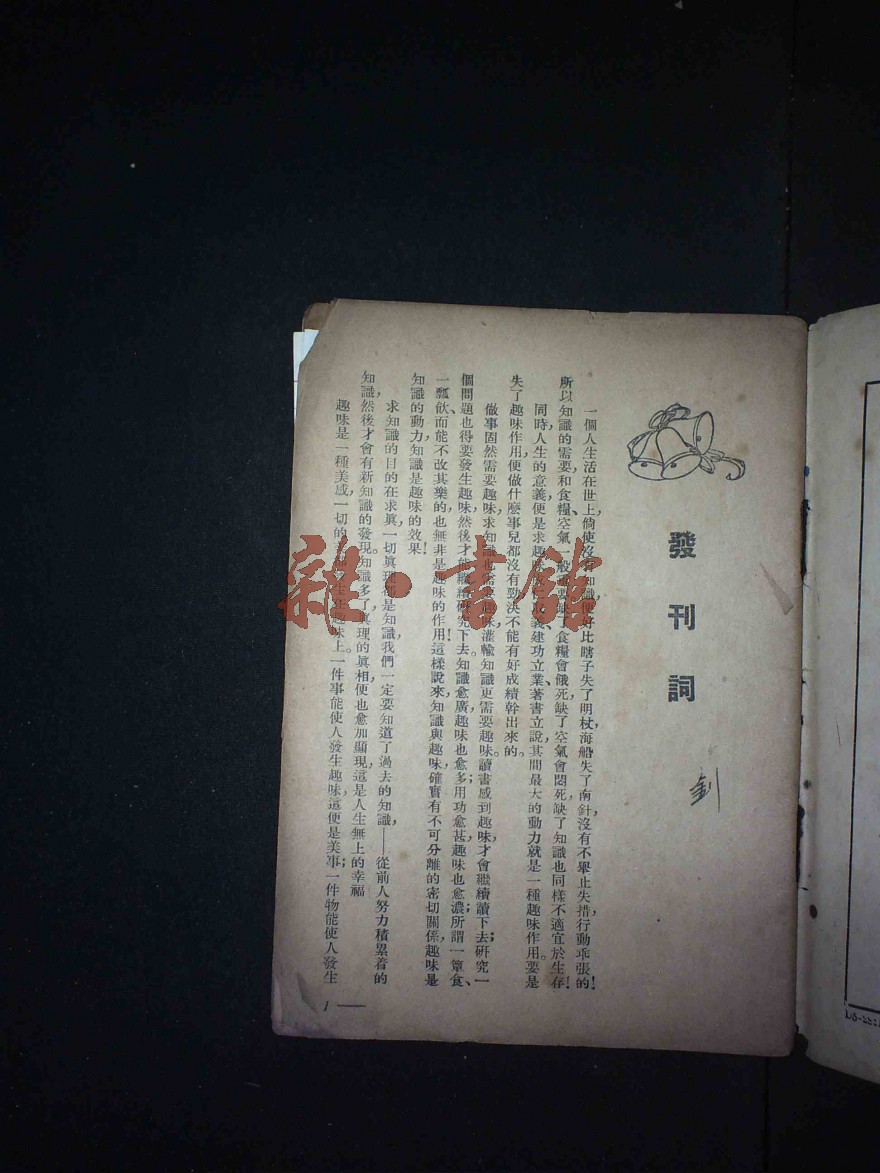 發刊詞
釗
一個人生活在世上，倘使沒有知識，便好比瞎子失了明杖，海船失了南針，沒有不舉止失措，行動乖張的！
所以知識的需要和食糧、空氣一般重要，缺了食糧會餓死，缺了空氣會悶死，缺了知識也同樣不適宜於生存！
同時，人生的意義，便是求趣味，成仁取義，建功立業、著書立說，其間最大的動力就是一種趣味作用。要是
失了趣味作用，便做什麼事兒都沒有勁，決不能有好成績幹出來的。
做事固然需要趣味，求知識也需要趣味，灌輸知識更需要趣味。讀書感到趣味，才會繼續讀下去；研究一
個問題也得要發生趣味，然後才能繼續研究下去。知識愈廣，趣味也愈多；用功愈甚，趣味也愈濃；所謂一簞食、
一瓢飲，而能不改其樂的，也無非是趣味的作用！這樣說來，知識與趣味，確實有不可分離的密切關係，趣味是
知識的動力，知識是趣味的效果！
求知識的目的在求眞，一切眞理都是知識，我們一定要知道了過去的知識，——從前人努力積累着的
知識，然後才會有新知識的發現。知識多了，眞理的眞相，便也愈加顯現，這是人生無上的幸福
趣味是一種美感，一切的 生在趣味上。一件事能使人發生趣味，這便是美事；一件物能使人發生
1 —
雜·書館